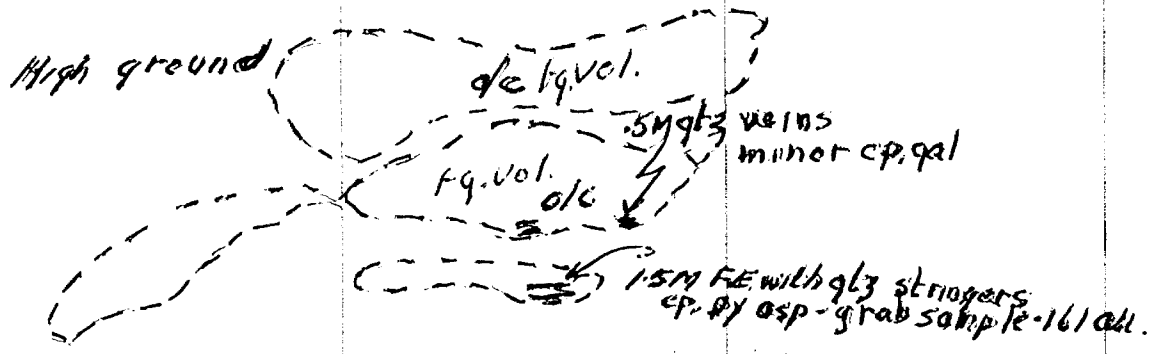 High ground
o/c f.g. vol.
.5M qtz veins
minor cp, gal
f.g. vol.
o/c
1.5M F.E. with qtz stringers
cp. py asp - grab sample .161